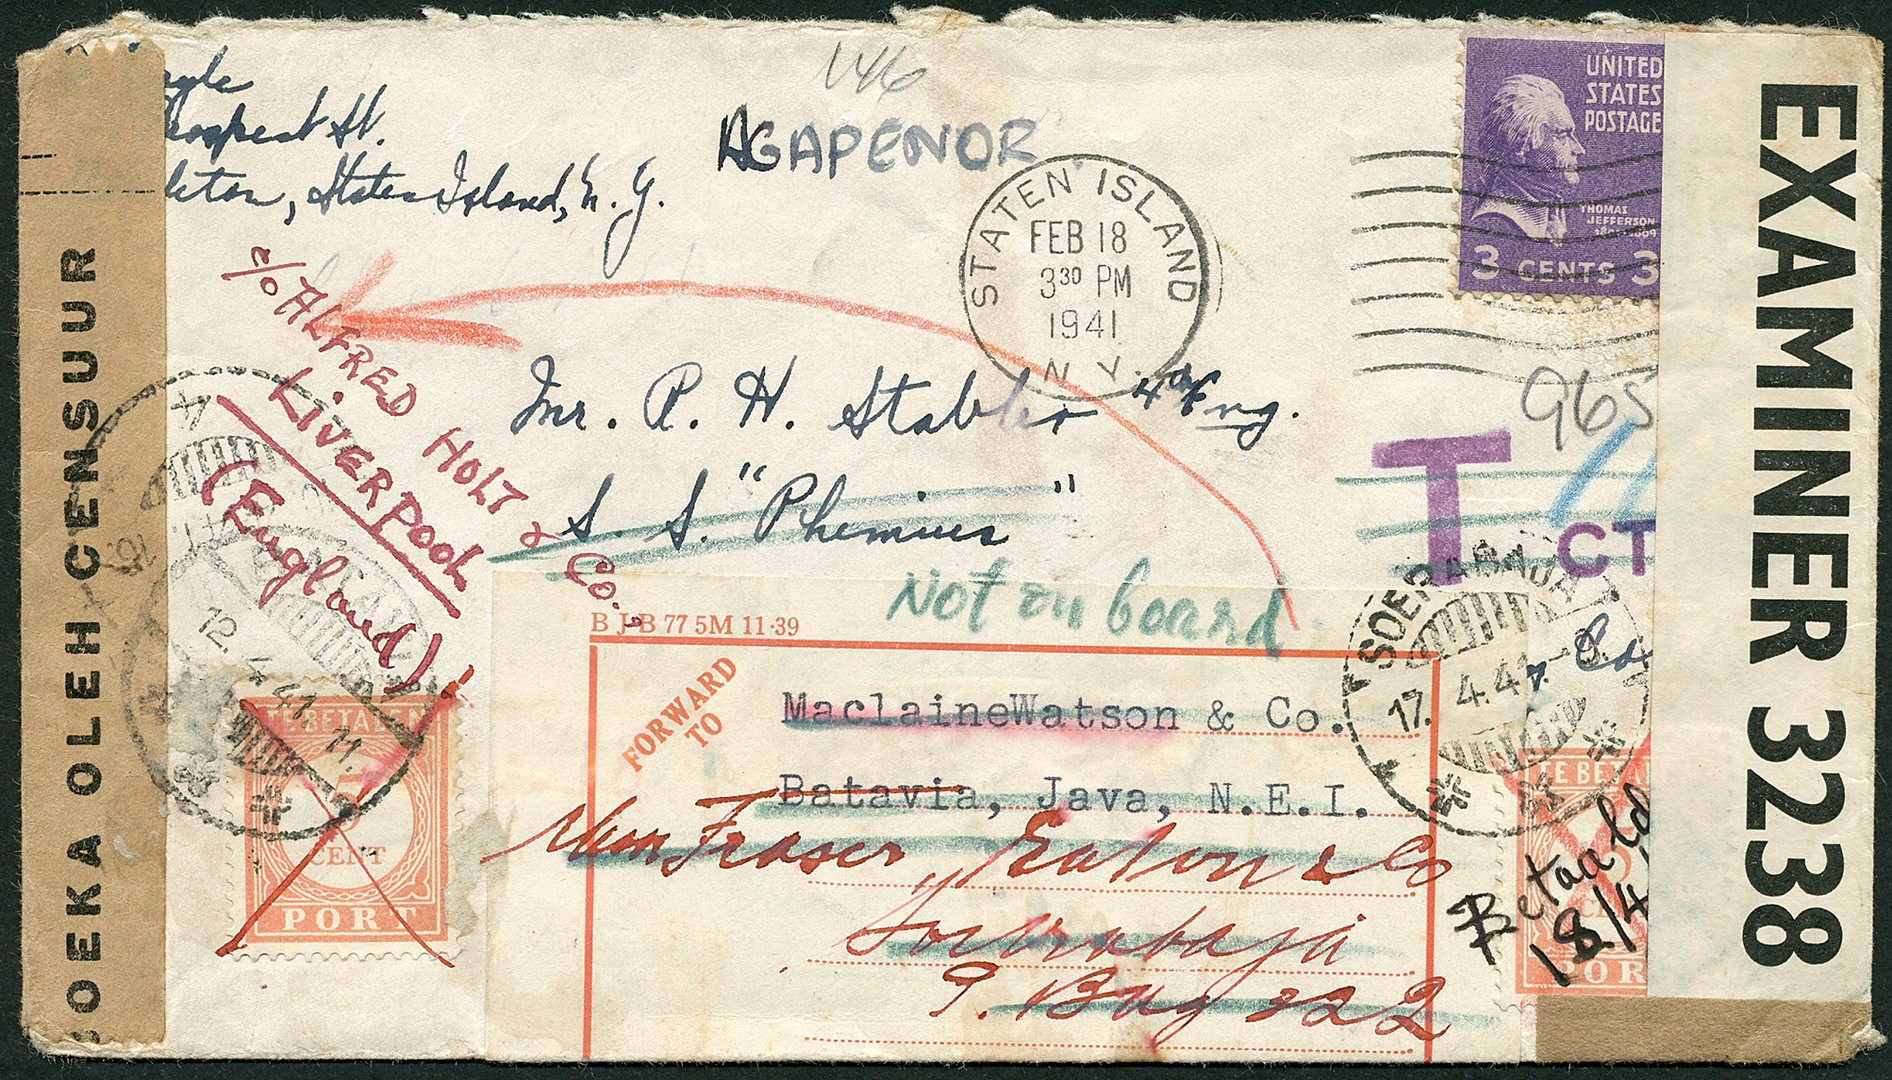 146
AGAPENOR
St.
Staten Island, N. Y.
UNITED
STATES
POSTAGE
THOMAS
JEFFERSON
3 CENTS 3
STATEN ISLAND
FEB 18
3 30 PM
1941
N. Y.
EXAMINER 3238
OLEH CENSUUR
c/o ALFRED HOLT & Co.,
LIVERPOOL
(England)
Mr. P. H. Stabler 4th Eng.
S. S. "Phemius"
965
T
CT
Not on board
B J-B 77 5M 11-39
FORWARD
TO
MaclaineWatson & Co.
Batavia, Java, N.E.I.
Fraser Eaton & Co
Soerabaja
P. Bag 222
SOERABAJA
17. 4.41
Co
12. 4 41. 11.
TE BETALEN
5
CENT
PORT
Betaald
18/4